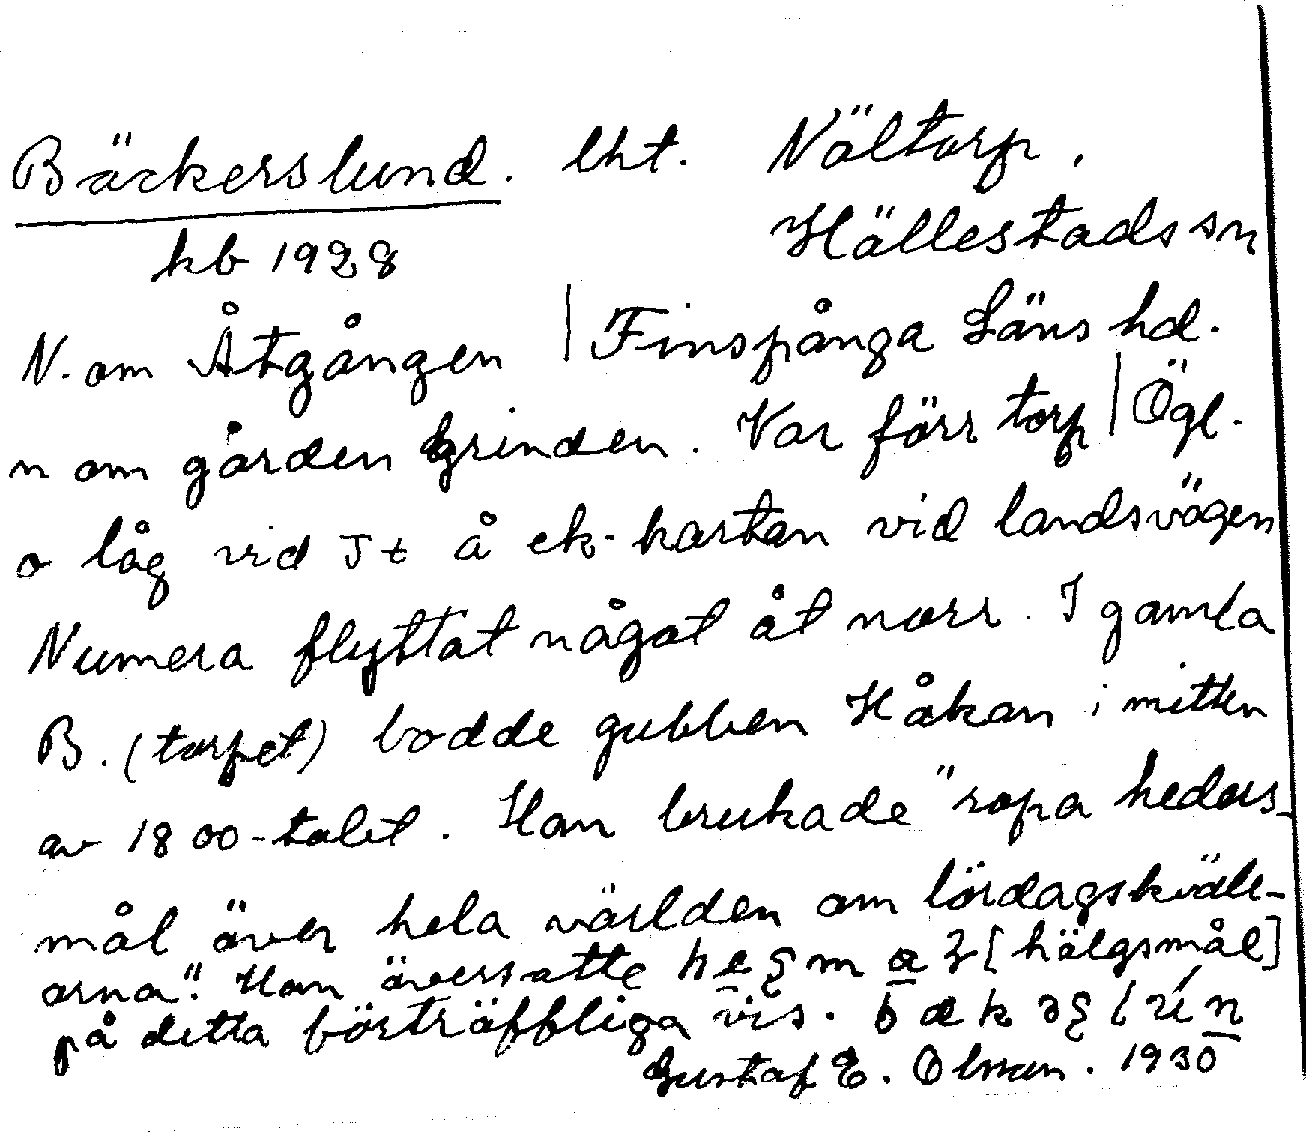 Bäckerslund. lht. Nältorp.
kb 1928 Hällestads sn
N. om Åtgången | Finspånga Läns hd.
n om gården Grinden. Var förr torp | Ögl.
o låg vid Jt å ek-kartan vid landsvägen
Numera flyttat något åt norr. I gamla
B. (torpet) bodde gubben Håkan i mitten
av 1800-talet. Han brukade "ropa heders-
mål över hela världen om lördagskväll-
arna". Han översatte [hälgsmål]
på detta förträffliga vis.
Gustaf E. Olsson. 1930